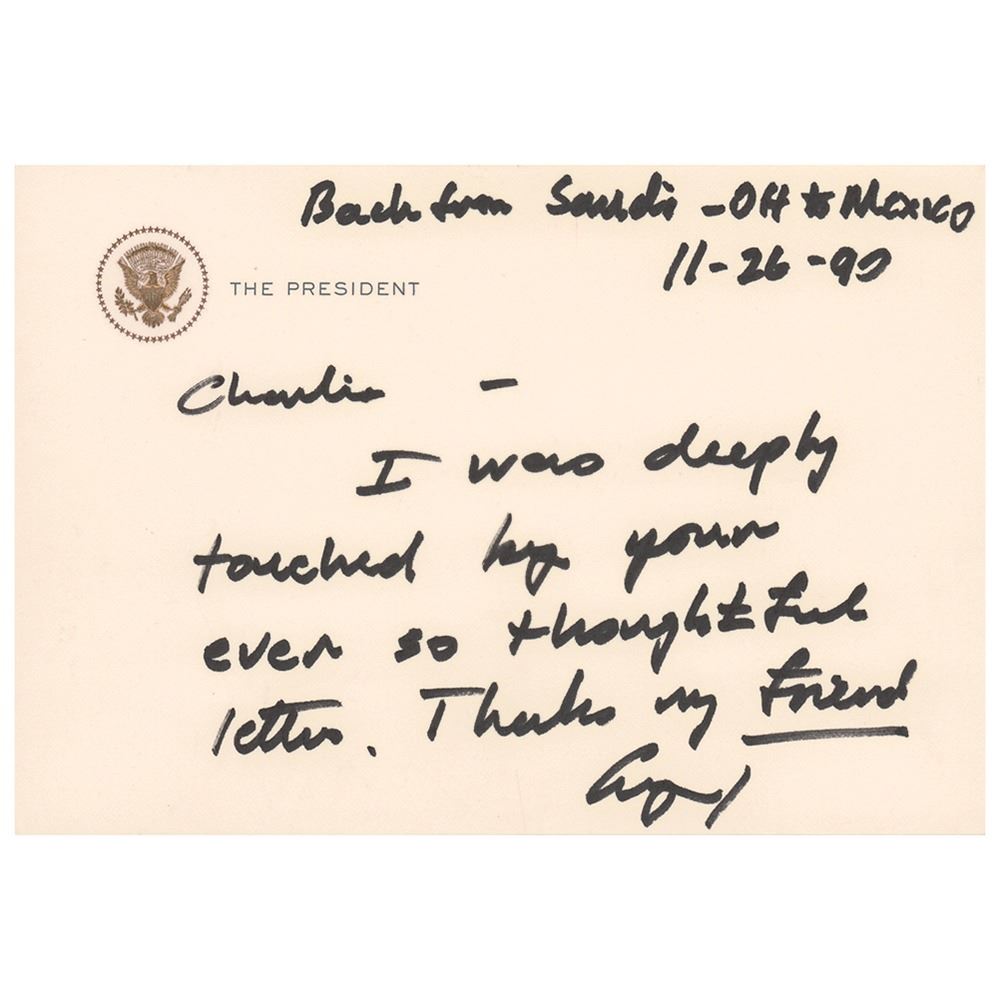 Back from Saudi - Off to Mexico
11-26-90
THE PRESIDENT
Charlie -
I was deeply
touched by your
ever so thoughtful
letter. Thanks my friend